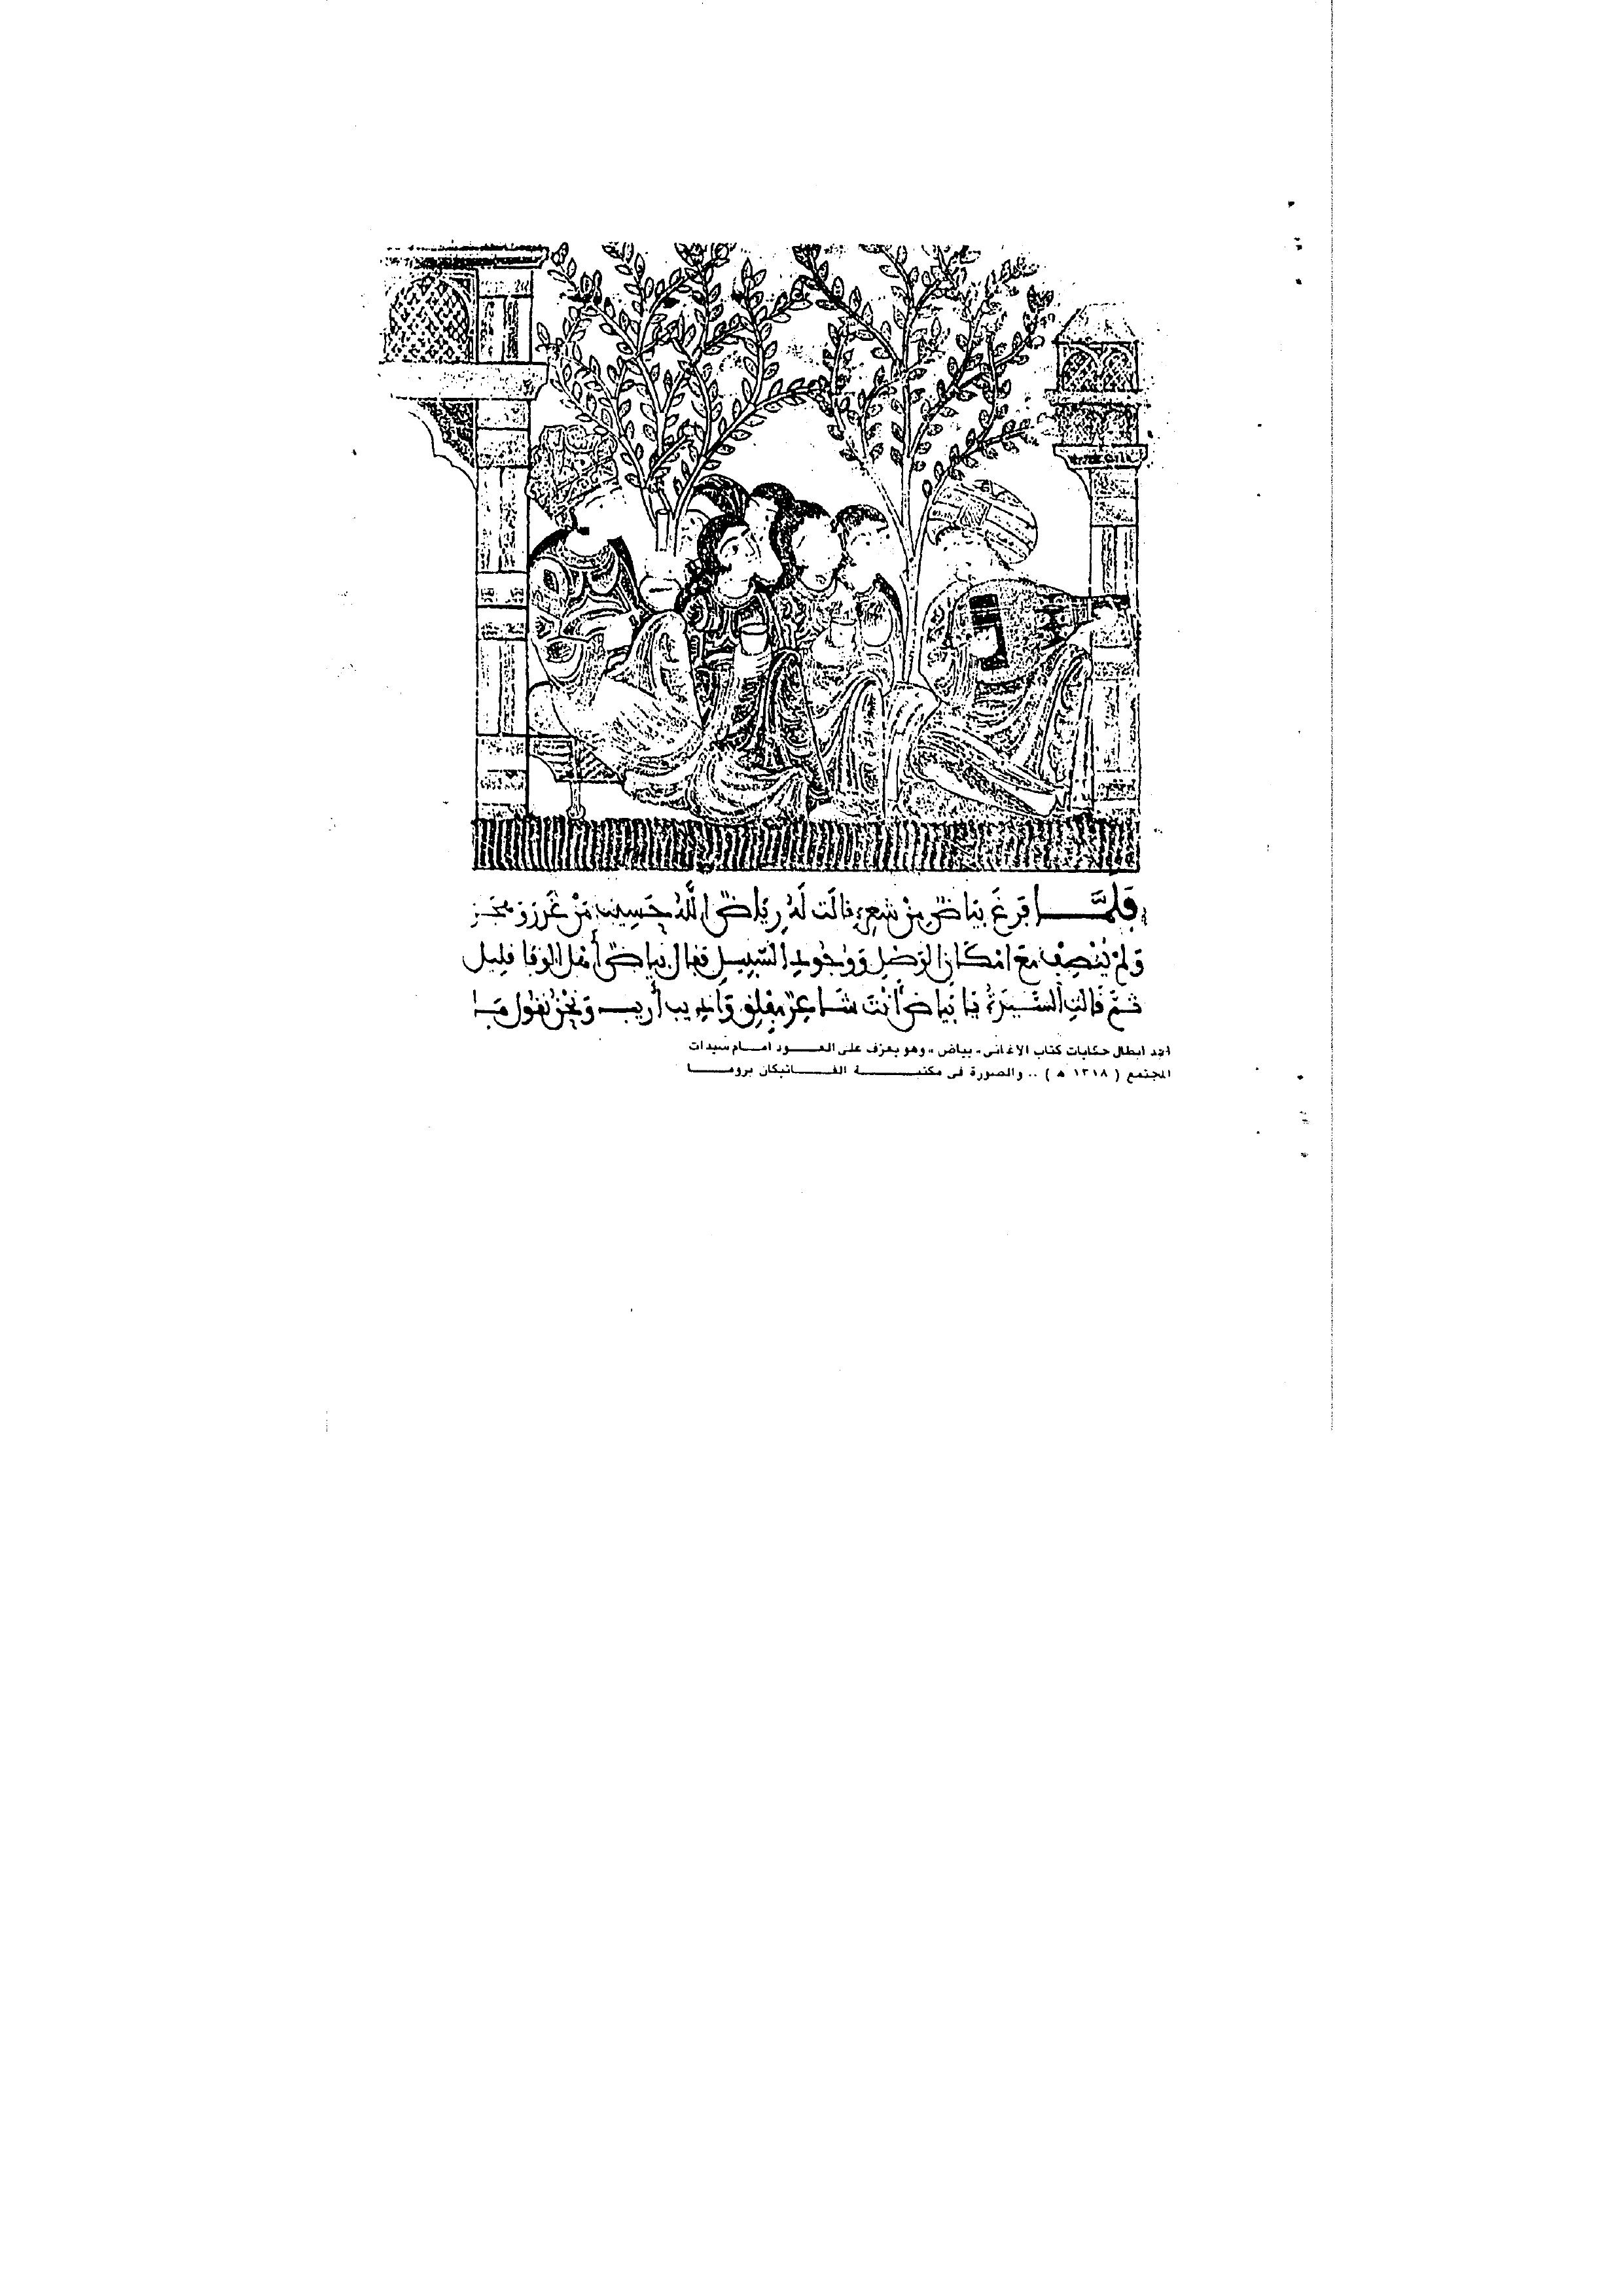 فَلَمَّا فَرَغَ بَيَاضٌ مِنْ شِعْرِهِ قَالَتْ لَهُ رِيَاضٌ اللَّهُ حَسِيبُ مَنْ غَرَّرَ وَ
وَلَمْ يُنْصِفْ مَعَ امْكَانِ الوَصْلِ وَوُجُودِ السَّبِيلِ فَقَال بَيَاضٌ أَهْلُ الوَفَا قَلِيل
ثُمَّ قَالَتِ السَّيِّدَةُ يَا بَيَاضُ أَنْتَ شَاعِرٌ مُفْلِقٌ وَأَدِيب أَرِيب وَنَحْنُ نَقُول مَا
احد ابطال حكايات كتاب الاغانى « بياض » وهو يعزف على العود امام سيدات
المجتمع ( ١٣١٨ هـ ) .. والصورة فى مكتبة الفاتيكان بروما